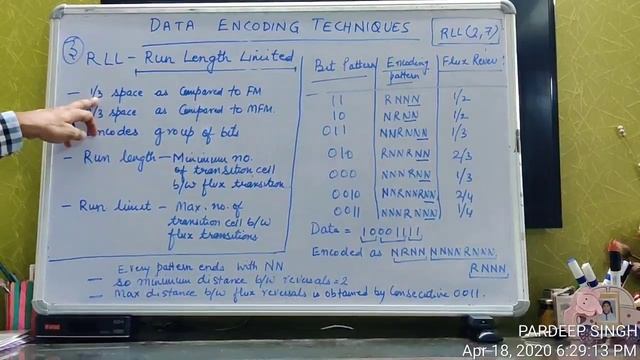 DATA ENCODING TECHNIQUES
RLL(2,7)
3 RLL - Run Length Limited
- 1/3 space as Compared to FM
/3 space as Compared to MFM.
encodes group of bits
- Run length - Minimum no.
of transition cell
b/w flux transition
- Run limit - Max. no. of
transition cell b/w
flux transitions
Bit Pattern Encoding pattern Flux Rever
11 RNNN 1/2
10 NRNN 1/2
011 NNRNNN 1/3
010 RNNRNN 2/3
000 NNNRNN 1/3
0010 NNRNNRNN 2/4
0011 NNNNRNNN 1/4
Data = 10001111
Encoded as NRNN NNNNRNNN,
RNNN,
- Every pattern ends with NN
- so minimum distance b/w reversals = 2
- Max distance b/w flux reversals is obtained by Consecutive 0011.
PARDEEP SINGH
Apr-18, 2020 6:29:13 PM